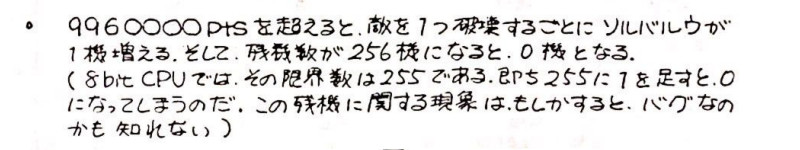 。 9960000ptsを超えると、敵を1つ破壊するごとにソルバルウが
1機増える。そして、残機数が256機になると、0機となる。
(8bit CPUでは、その限界数は255である。即ち255に1を足すと、0
になってしまうのだ。この残機に関する現象は、もしかすると、バグなの
かも知れない)